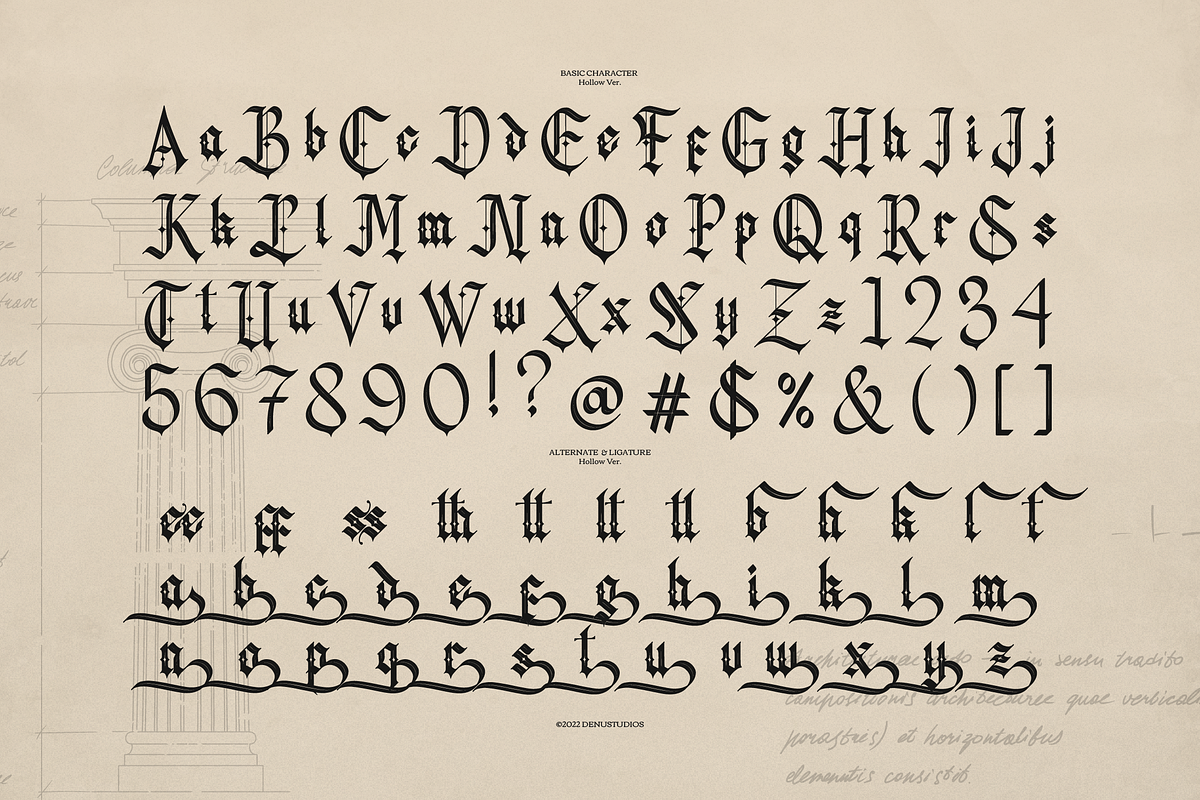 BASIC CHARACTER
Hollow Ver.
Aa Bb Cc Dd Ee Ff Gg Hh Ii Jj
Kk Ll Mm Nn Oo Pp Qq Rr Ss
Tt Uu Vv Ww Xx Yy Zz 1234
567890!?@#$%&()[]
ALTERNATE & LIGATURE
Hollow Ver.
ee ff ss th tt lt tl b h k l t
a b c d e f g h i k l m
n o p q r s t u v w x y z
©2022 DENUSTUDIOS
in sensu tradito
compositionis quae
et horizontalibus
elementis consistit.